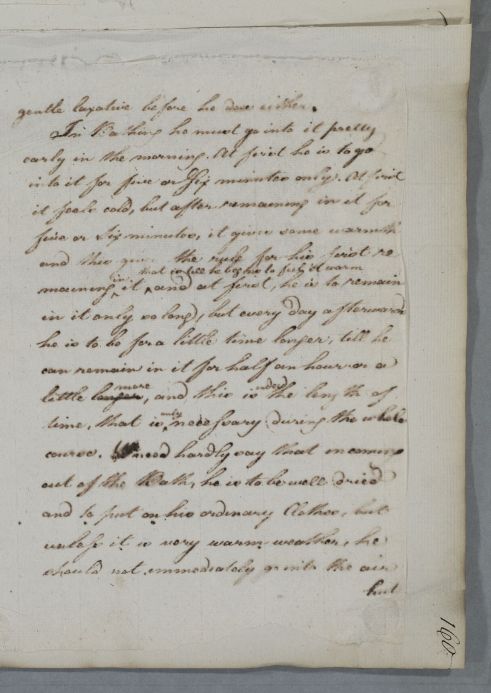 gentle laxative before he does either.
In Bathing he must go into it pretty
early in the morning. At first he is to go
into it for five or six minutes only. At first
it feels cold, but after remaining in it for
five or six minutes, it gives some warmth
and this gives the rule for his first re
that is till he begins to feel it warm
maining in it and at first, he is to remain
in it only so long), but every day afterwards
he is to be for a little time longer, till he
can remain in it for half an hour or a
little longer more, and this is indeed the length of
time, that is only necessary during the whole
course. I need hardly say that in coming
out of the Bath, he is to be well dried
and to put on his ordinary Clothes, but
unless it is very warm weather, he
should not immediately go into the air
but
160